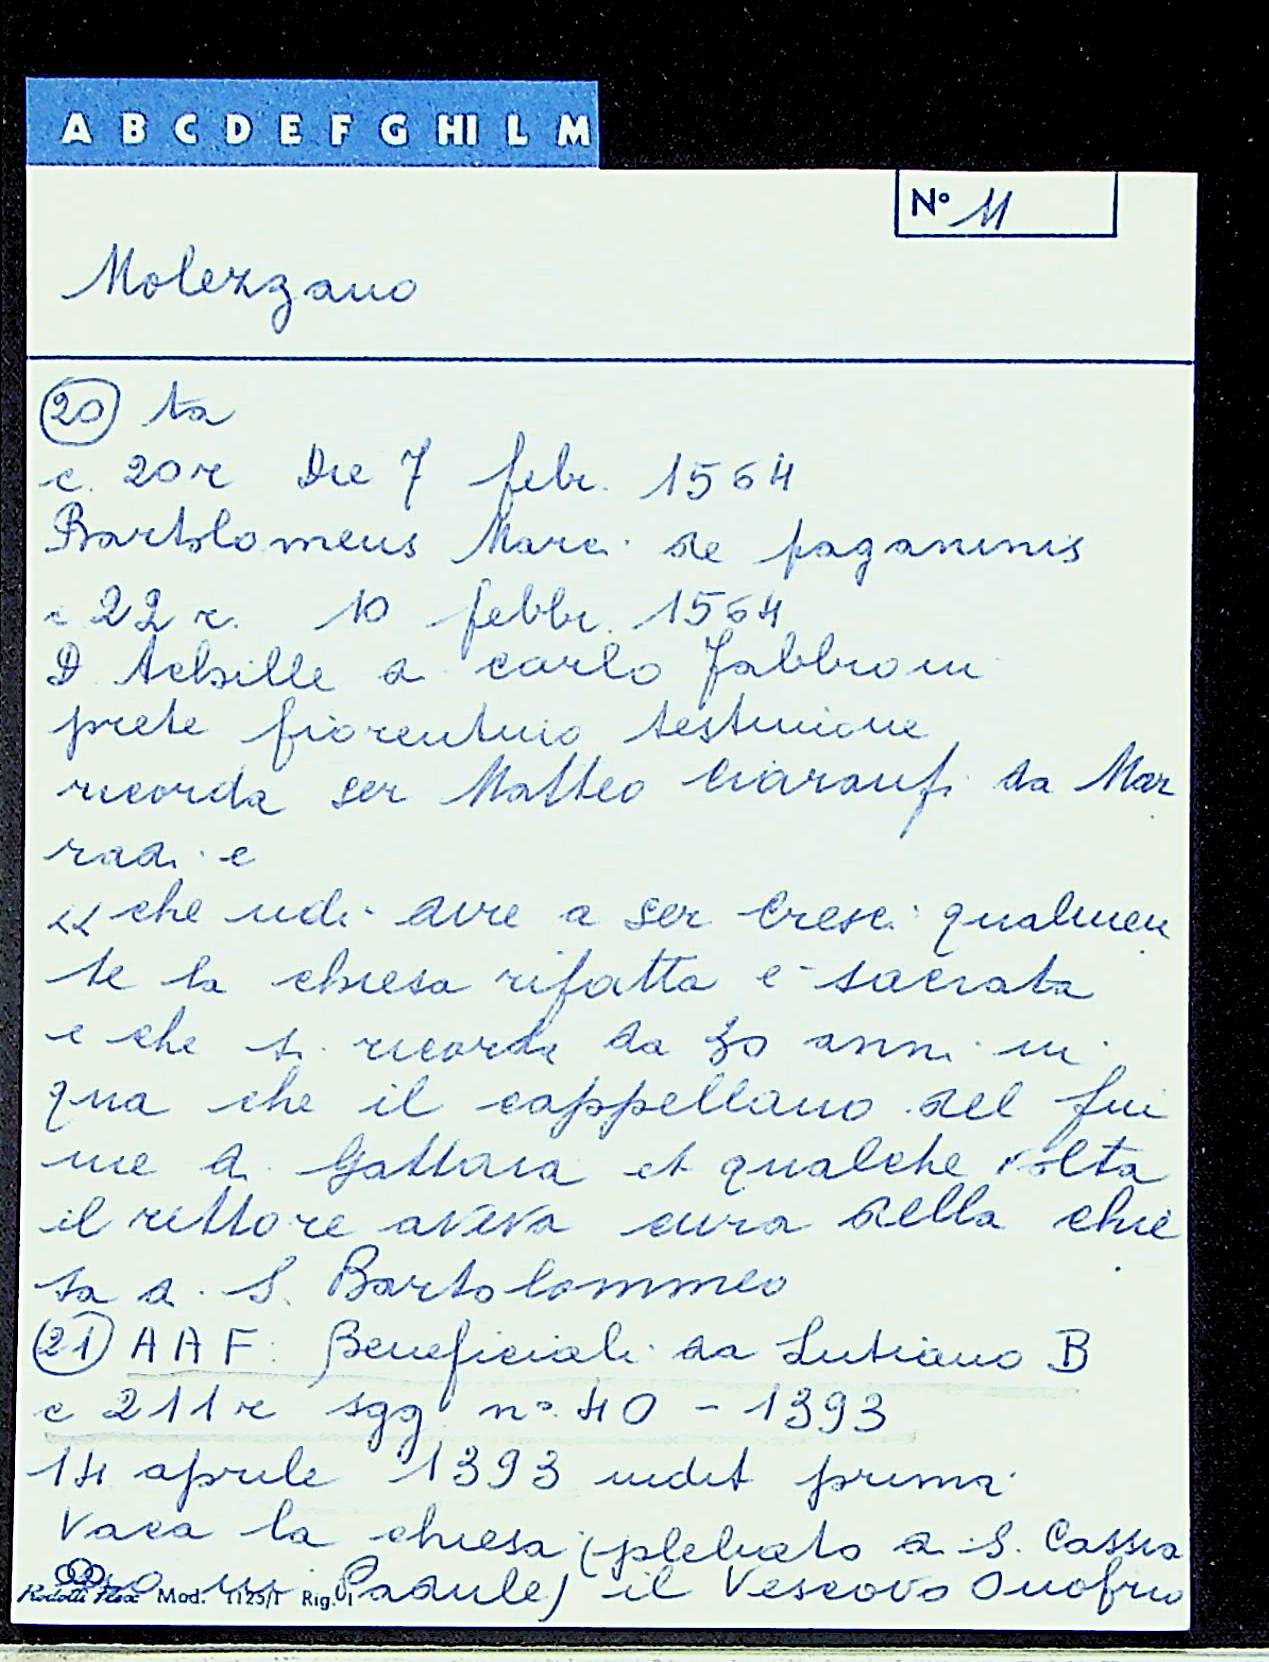 A B C D E F G HI L M
N° 11
Molezzano
20 ta
c. 20r Die 7 febr. 1564
Bartolomeus Marci de paganinis
c 22 r. 10 febbr. 1564
D Achille di carlo Fabbroni
prete fiorentino testimone
ricorda ser Matteo Ciaranfi da Mar
radi e
<< che udi dire a ser Cresci qualmen
te la chiesa rifatta e sacrata
e che si ricorda da 30 anni in
qua che il cappellano del fiu
me di Gattaia et qualche volta
il rettore aveva cura della chie
sa di S. Bartolommeo
21 AAF: Beneficiali da Lutiano B
c 211r sgg n° 40 - 1393
14 aprile 1393 indit prima
Vaca la chiesa (plebato di S. Cassia
no in Padule) il Vescovo Onofrio
Mod. 1125/1 Rig.